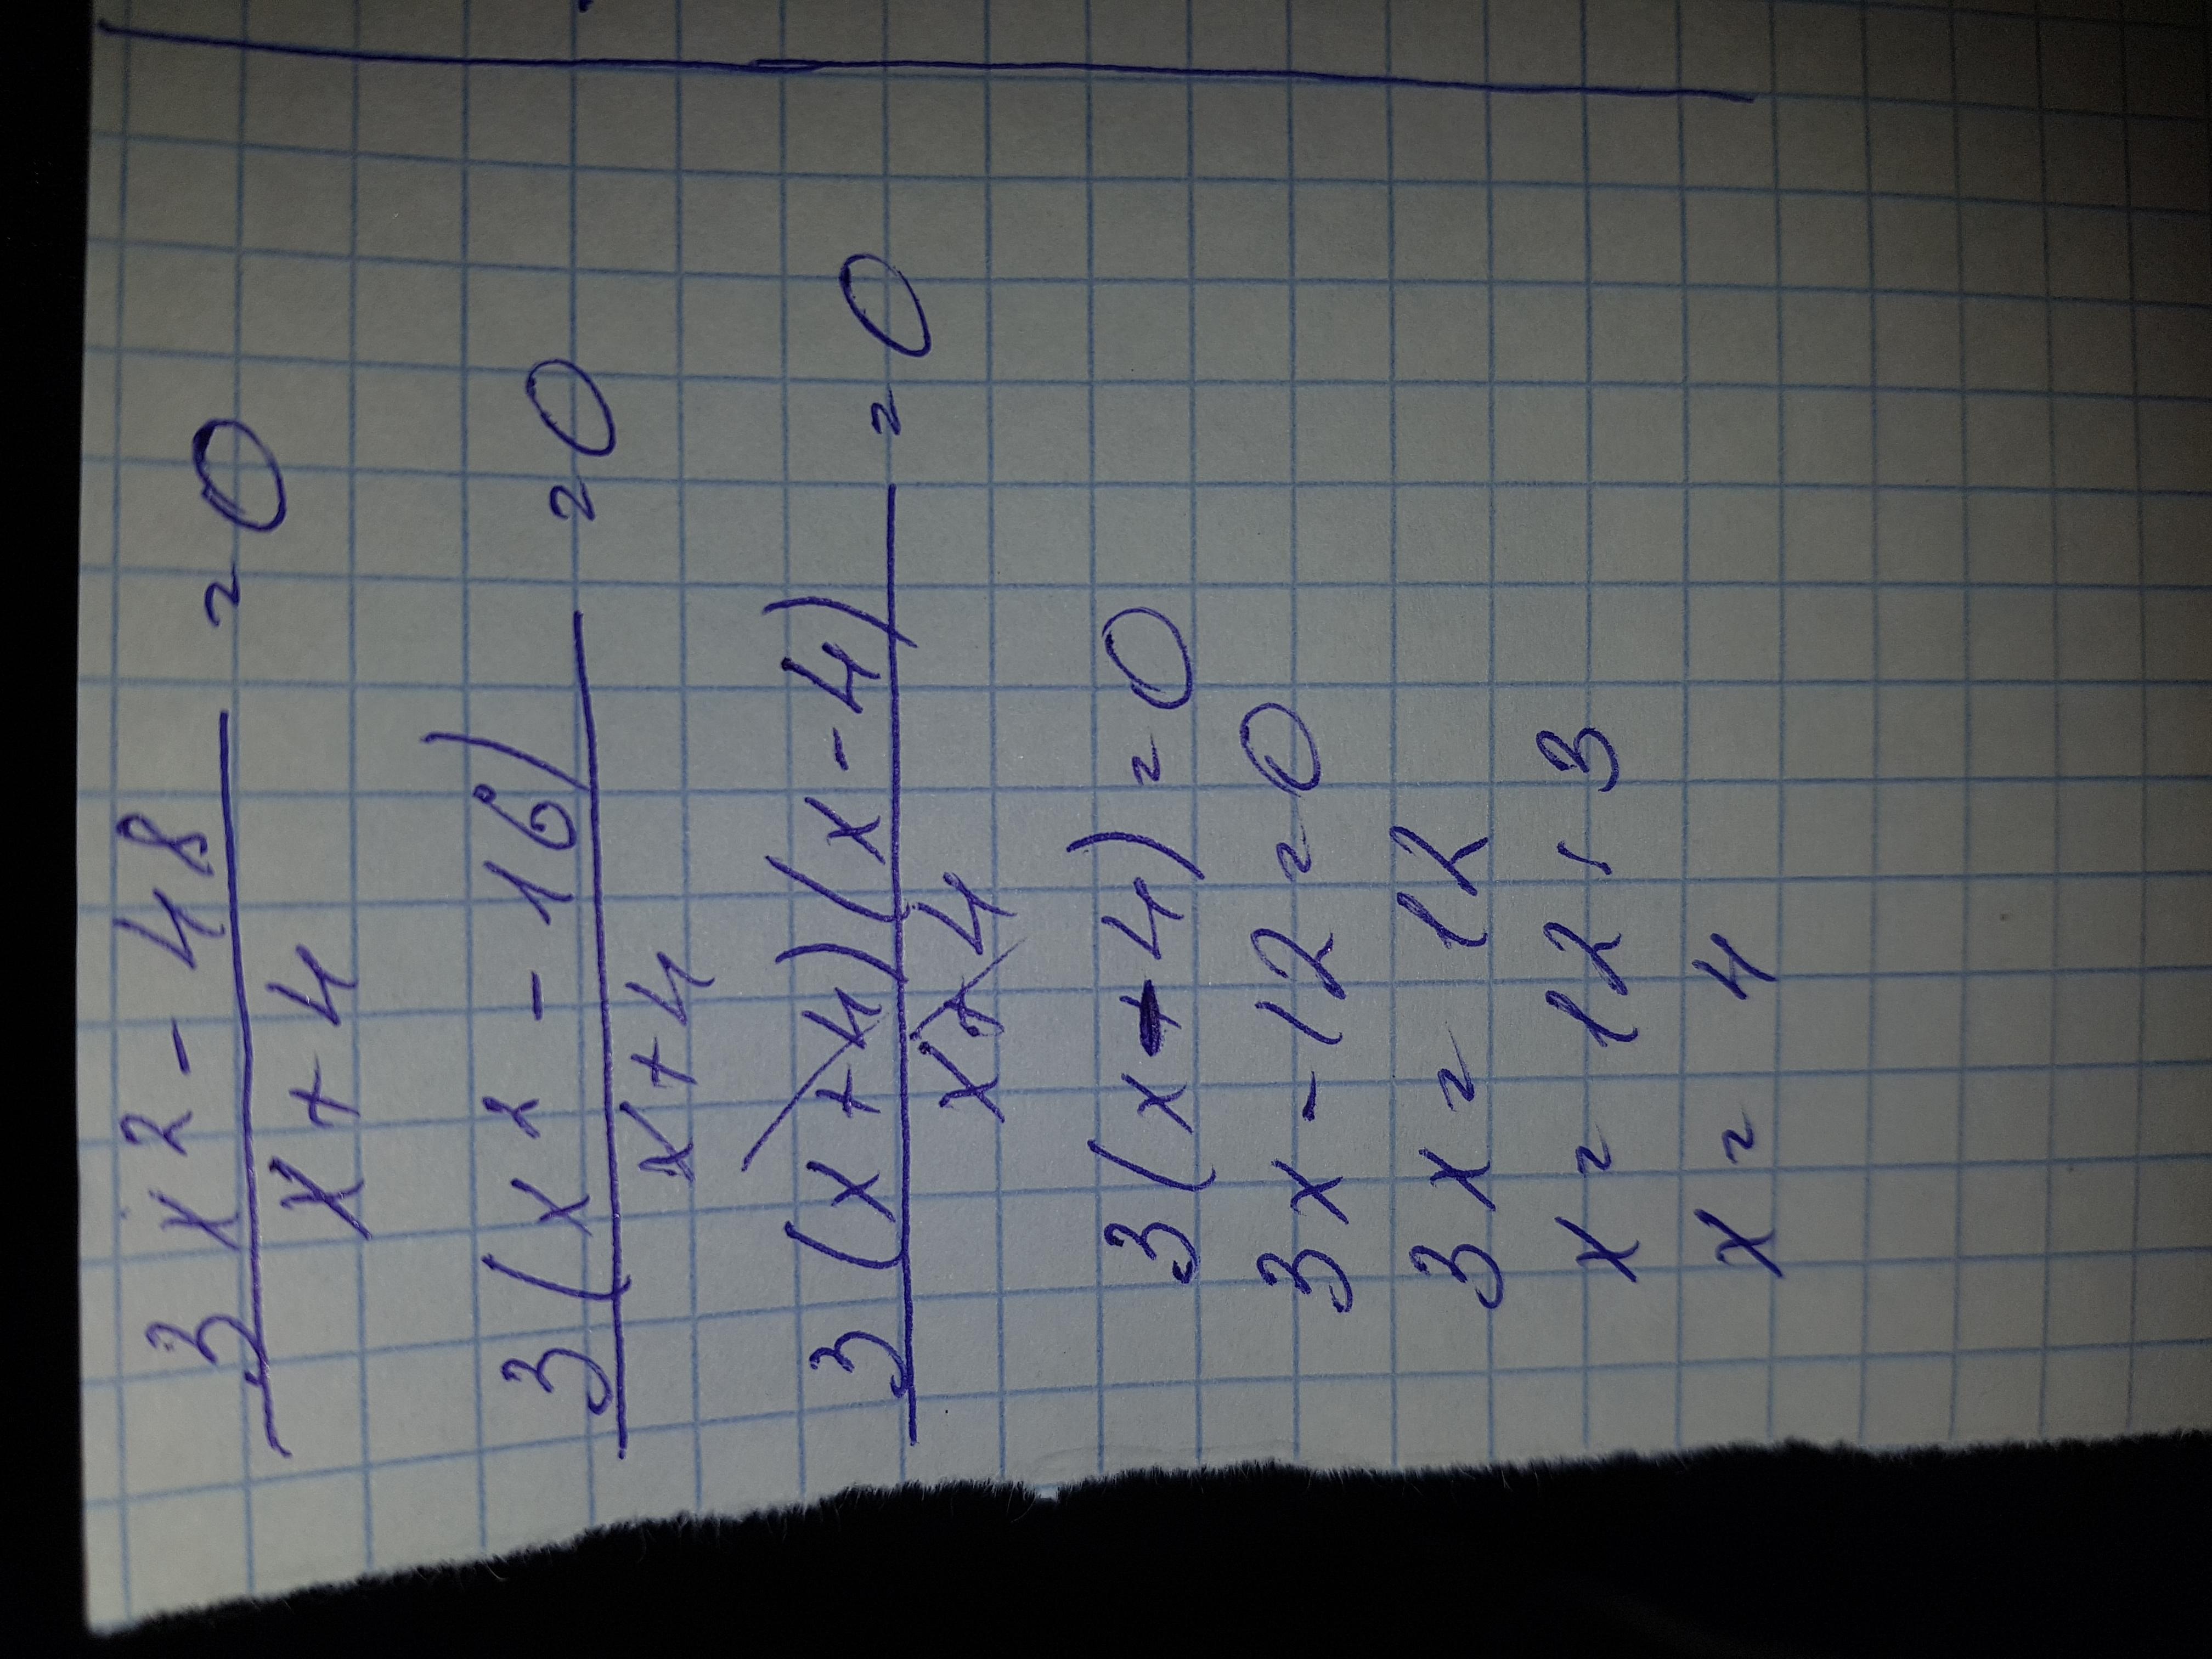 3x² - 48 = 0
x + 4
3(x² - 16) = 0
x + 4
3(x + 4)(x - 4) = 0
x + 4
3(x - 4) = 0
3x - 12 = 0
3x = 12
x = 12 : 3
x = 4